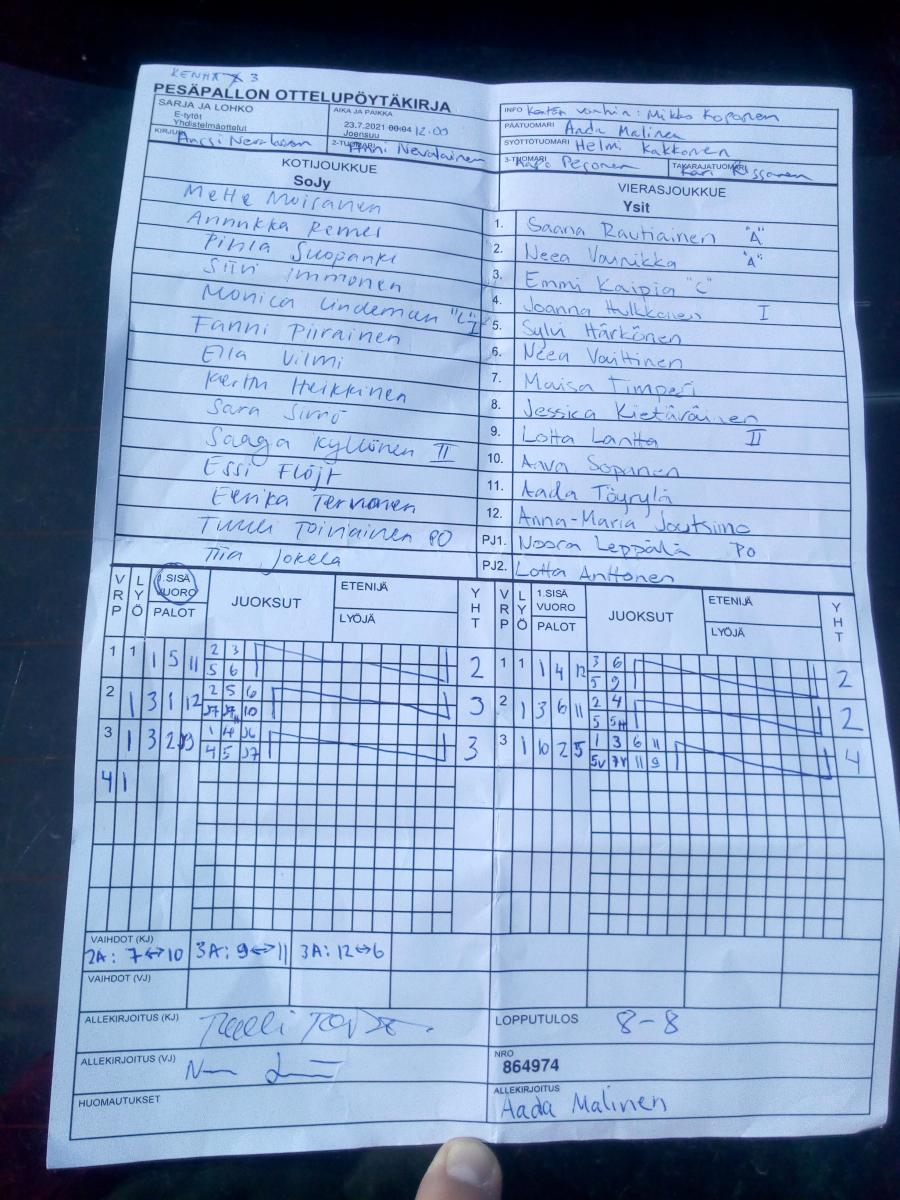 KENTTÄ 3
PESÄPALLON OTTELUPÖYTÄKIRJA
SARJA JA LOHKO
E-tytöt
Yhdistelmäottelut
AIKA JA PAIKKA
23.7.2021 00:04 12.00
Joensuu
KIRJURI Anssi Nevalainen
2-TUOMARI Anni Nevalainen
INFO Kentän vanhin: Mikko Koponen
PÄÄTUOMARI Aada Malinen
SYÖTTÖTUOMARI Helmi Kakkonen
3-TUOMARI Aapo Pesonen
TAKARAJATUOMARI Kari Kissanen
KOTIJOUKKUE
SoJy
VIERASJOUKKUE
Ysit
Mette Moisanen
Annukka Remes
Pihla Suopanki
Siiri Immonen
Monica Lindeman "C" I
Fanni Piirainen
Ella Vilmi
Kerttu Heikkinen
Sara Simo
Saaga Kyllönen II
Essi Flöjt
Eerika Tervonen
Tuuli Toiviainen PO
Tiia Jokela
1. Saana Rautiainen "A"
2. Neea Vainikka "A"
3. Emmi Kaipia "C"
4. Joanna Hulkkonen I
5. Sylvi Härkönen
6. Neea Voittinen
7. Maisa Timperi
8. Jessica Kietäväinen
9. Lotta Lantta II
10. Anva Sopanen
11. Aada Töyrylä
12. Anna-Maria Joutsimo
PJ1. Noora Leppälä PO
PJ2. Lotta Anttonen
VRP LYÖ 1.SISÄ VUORO PALOT JUOKSUT ETENIJÄ LYÖJÄ YHT
VRP LYÖ 1.SISÄ VUORO PALOT JUOKSUT ETENIJÄ LYÖJÄ YHT
1 1 1 5 11 2 3 2
5 6
2 1 3 1 12 2 5 6 3
J7 J7 10
3 1 3 2 1 4 J6 3
4 5 J7
4 1
1 1 1 4 12 3 6 2
5 9
2 1 3 6 11 2 4 2
5
3 1 10 2 5 1 3 6 11 4
5V 7V 11 9
VAIHDOT (KJ)
2A: 7↔10 3A: 9↔11 3A: 12↔6
VAIHDOT (VJ)
ALLEKIRJOITUS (KJ)
LOPPUTULOS 8-8
ALLEKIRJOITUS (VJ)
NRO
864974
HUOMAUTUKSET
ALLEKIRJOITUS
Aada Malinen